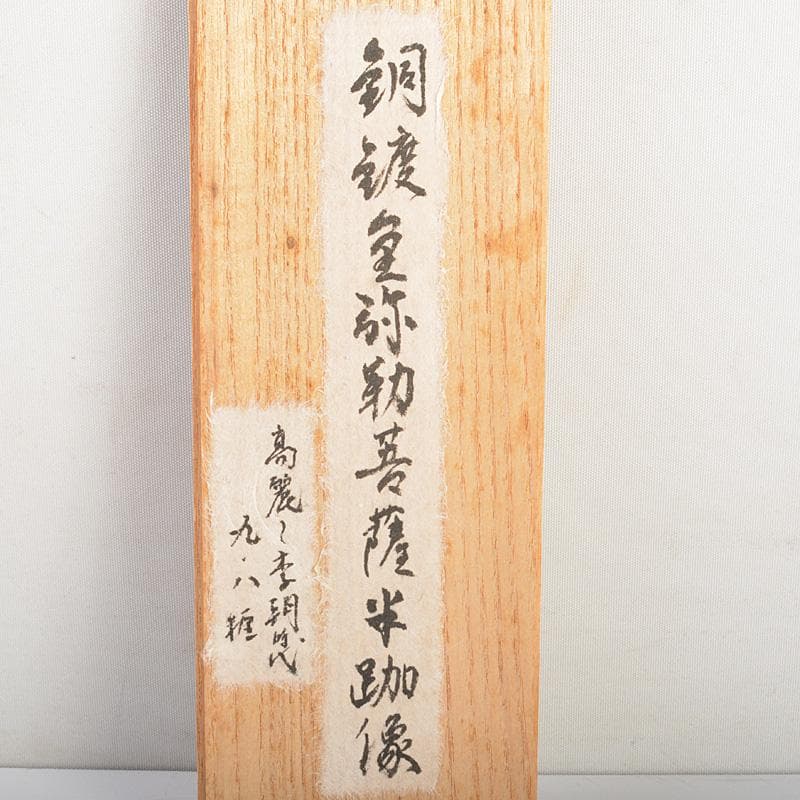 銅鍍金弥勒菩薩半跏像
高麗〜李朝時代
九・八糎